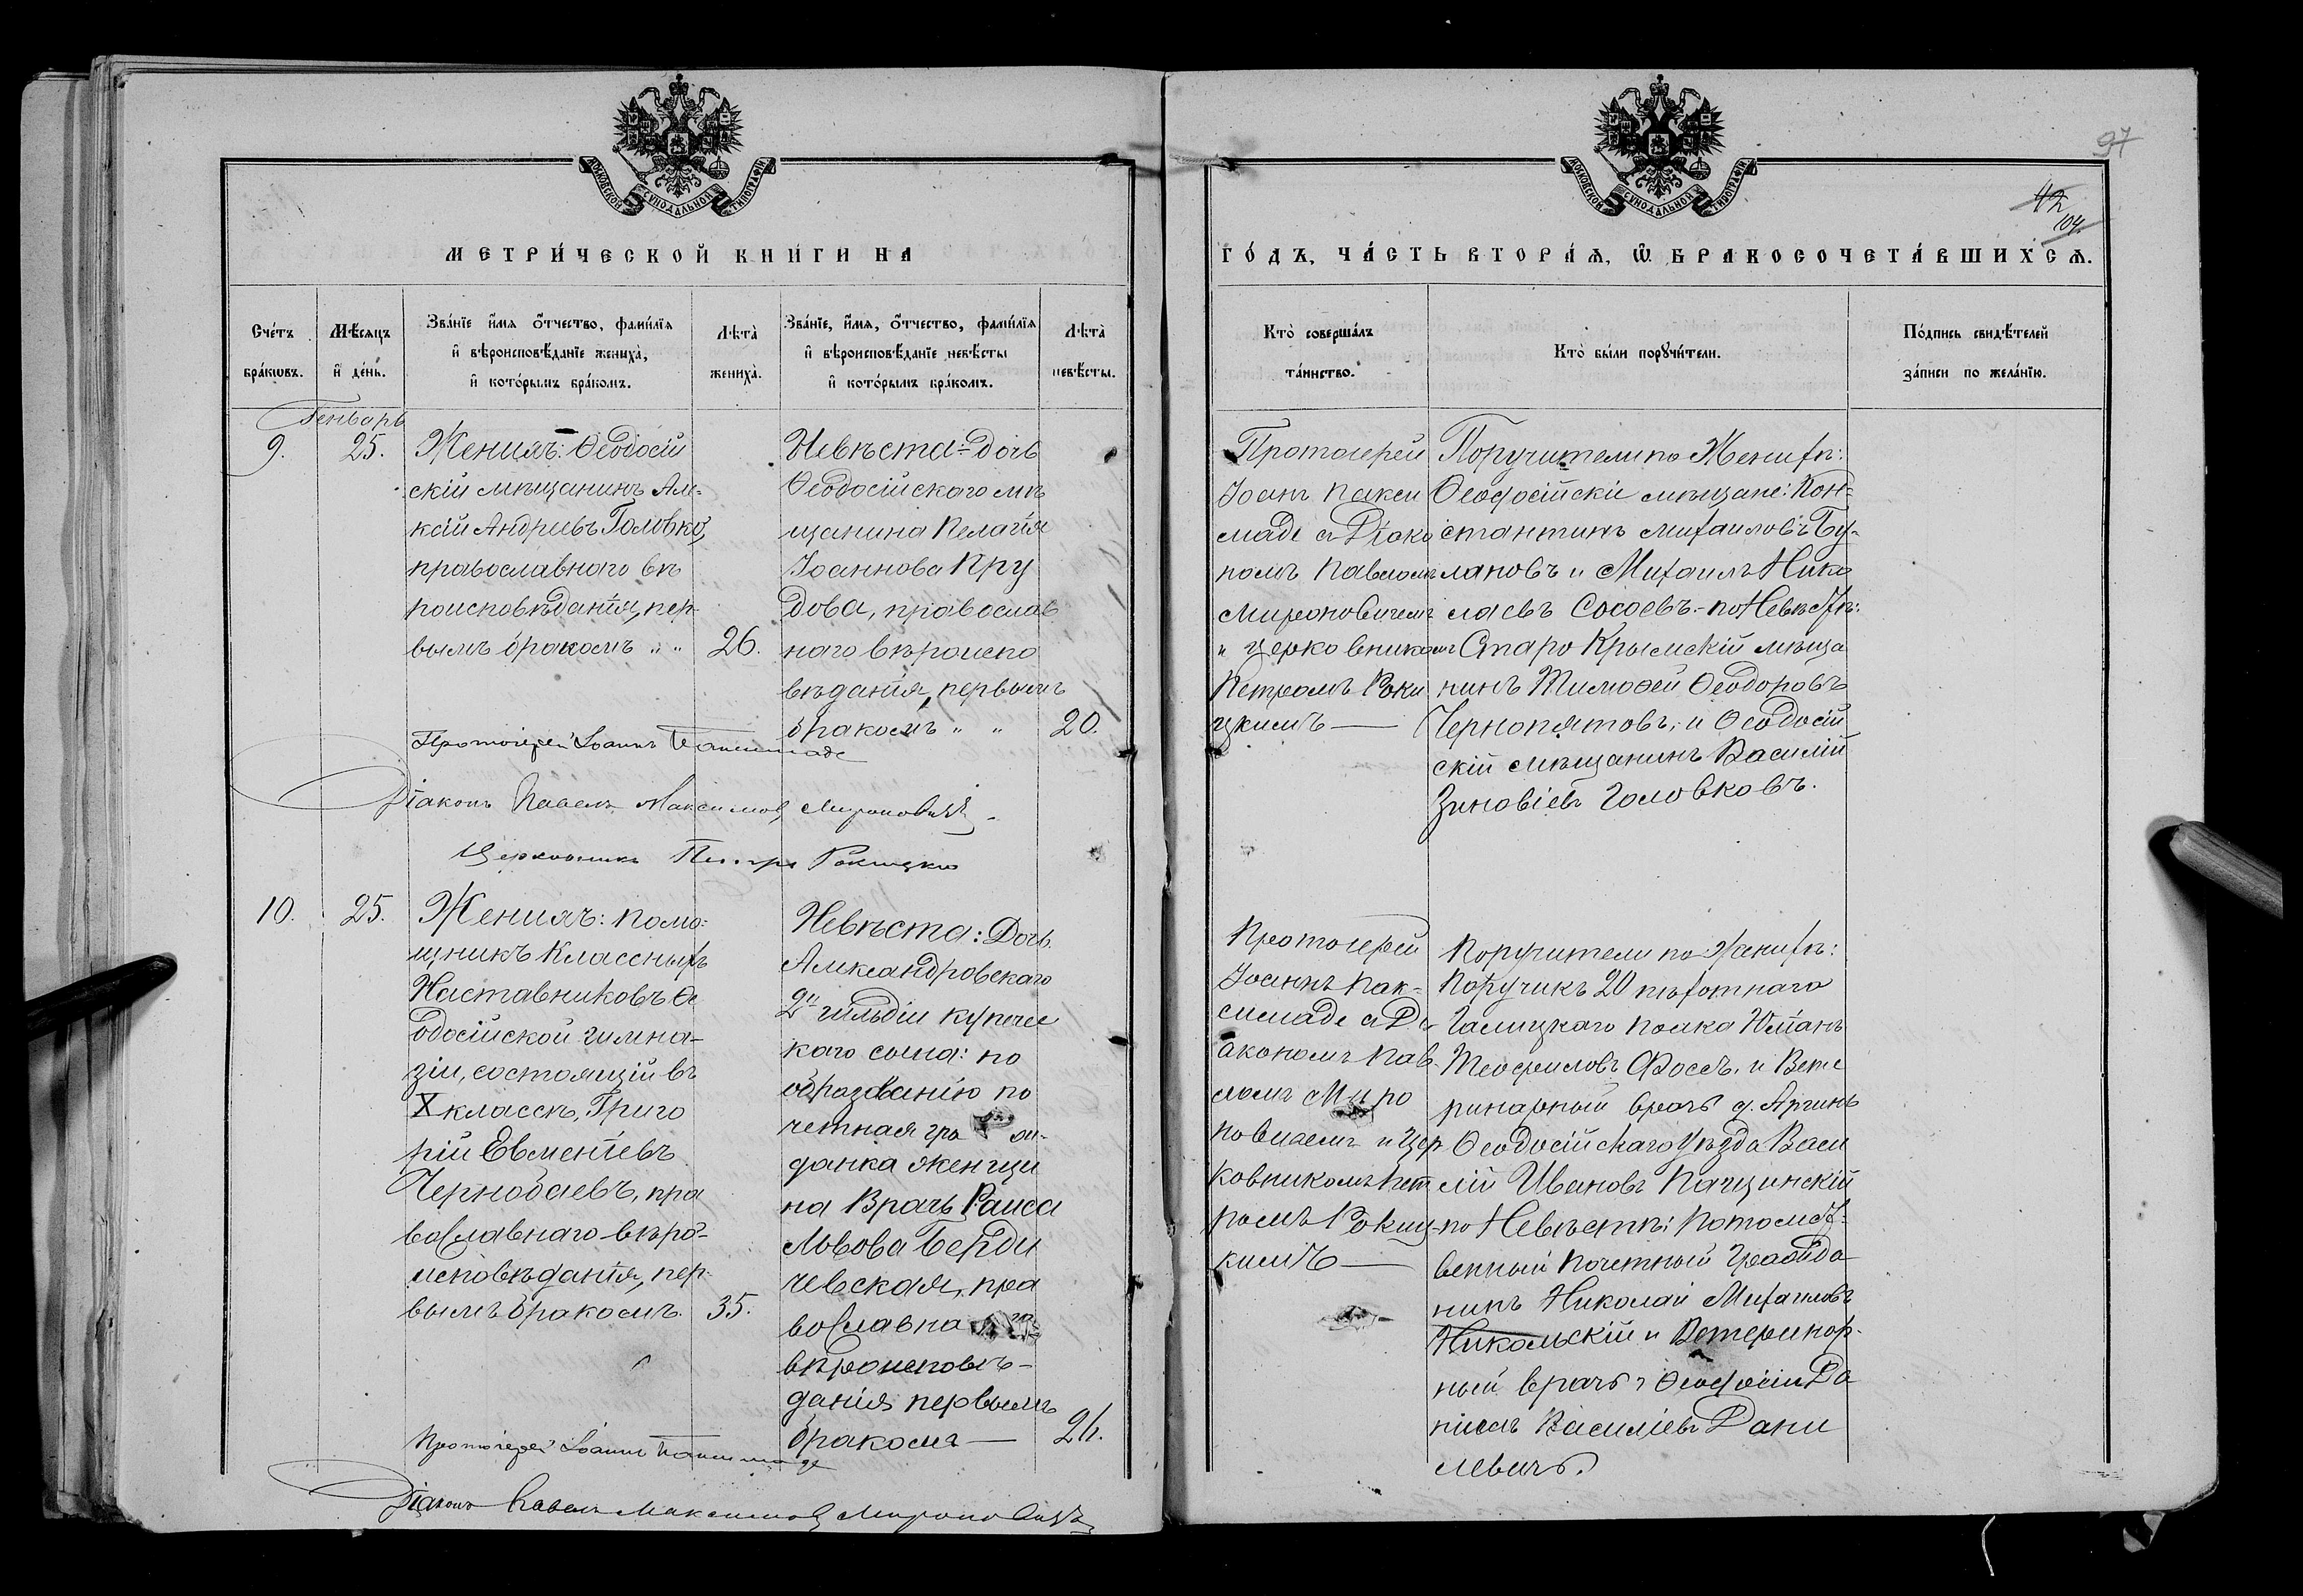 МОСКОВСКОЙ СѴНОДАЛЬНОЙ ТИПОГРАФІИ
МЕТРИ́ЧЕСКОЙ КНИ́ГИ НА
Сче́тъ бра́кѡвъ.
Мѣ́сяцъ и҆ де́нь.
Зва́нїе и҆́мя ѻ҆́тчество, фами́лїя
и҆ вѣроисповѣ́данїе жениха̀,
и҆ кото́рымъ бра́комъ.
Лѣ́та жениха̀.
Зва́нїе, и҆́мя, ѻ҆́тчество, фами́лїя
и҆ вѣроисповѣ́данїе невѣ́сты
и҆ кото́рымъ бра́комъ.
Лѣ́та невѣ́сты.
Генварь
9.
25.
Женихъ: Ѳеодосій
скій мѣщанинъ Ал-
кій Андріевъ Головко,
православнаго вѣ
роисповѣданія, пер-
вымъ бракомъ " "
26.
Невѣста: дочь
Ѳеодосійскаго мѣ
щанина Пелагія
Іоаннова Пру
дова, православ
наго вѣроиспо
вѣданія, первымъ
бракомъ " "
20.
Протоіерей Іоаннъ Паксимаде
Діаконъ Павелъ Максимовъ Мироновичъ
Церковникъ Петръ Рокицкій
10.
25.
Женихъ: Помо-
щникъ Классныхъ
Наставниковъ Ѳе
одосійской гимна-
зіи, состоящій въ
X классѣ, Григо
рій Евменіевъ
Чернобаевъ, пра
вославнаго вѣро-
исповѣданія, пер-
вымъ бракомъ.
35.
Невѣста: Дочь
Александровскаго
2й гильдіи купечес
каго сына: по
образованію по
четная гра
данка женщи
на Врачъ Раиса
Львова Берди
чевская, пра
вославна го
вѣроисповѣ-
данія первымъ
бракомъ —
26.
Протоіерей Іоаннъ Паксимаде
Діаконъ Павелъ Максимовъ Мироновичъ
97
42
104
МОСКОВСКОЙ СѴНОДАЛЬНОЙ ТИПОГРАФІИ
ГО́ДЪ, ЧА́СТЬ ВТОРА́Я, Ѡ҆ БРАКОСОЧЕТА́ВШИХСЯ.
Кто̀ соверша́лъ та́инство.
Кто̀ бы́ли порꙋчи́тели.
По́дпись свидѣ́телей за́писи по жела́нїю.
Протоіерей
Іоанъ Пакси
маде съ Діако
номъ Павломъ
Мироновичемъ
и церковникомъ
Петромъ Роки
цкимъ —
Поручители по Женихѣ:
Ѳеодосійскіе мѣщане: Кон-
стантинъ Михаиловъ Бу-
лановъ и Михаилъ Нико
лаевъ Сосоевъ.- по Невѣстѣ:
Старо Крымскій мѣща
нинъ Тимоѳей Ѳеодоровъ
Чернопятовъ, и Ѳеодосій
скій мѣщанинъ Василій
Зиновіевъ Головковъ.
Протоіерей
Іоаннъ Пак-
симаде съ Ді
акономъ Пав
ломъ Миро
новичемъ и Цер
ковникомъ Пет
ромъ Рокиц-
кимъ —
Поручители по Женихѣ:
Поручикъ 20 пѣхотнаго
Галицкаго полка Юліанъ
Теофиловъ Фоссъ, и Вете
ринарный врачъ д. Аргинъ
Ѳеодосійскаго Уѣзда Васи
лій Ивановъ Пащинскій
по Невѣстѣ: Потомст-
венный Почетный Гражда-
нинъ Николай Михаиловъ
Никольскій и Ветеринар-
ный врачъ г Ѳеодосіи Да
ніилъ Василіевъ Дани
левичъ.